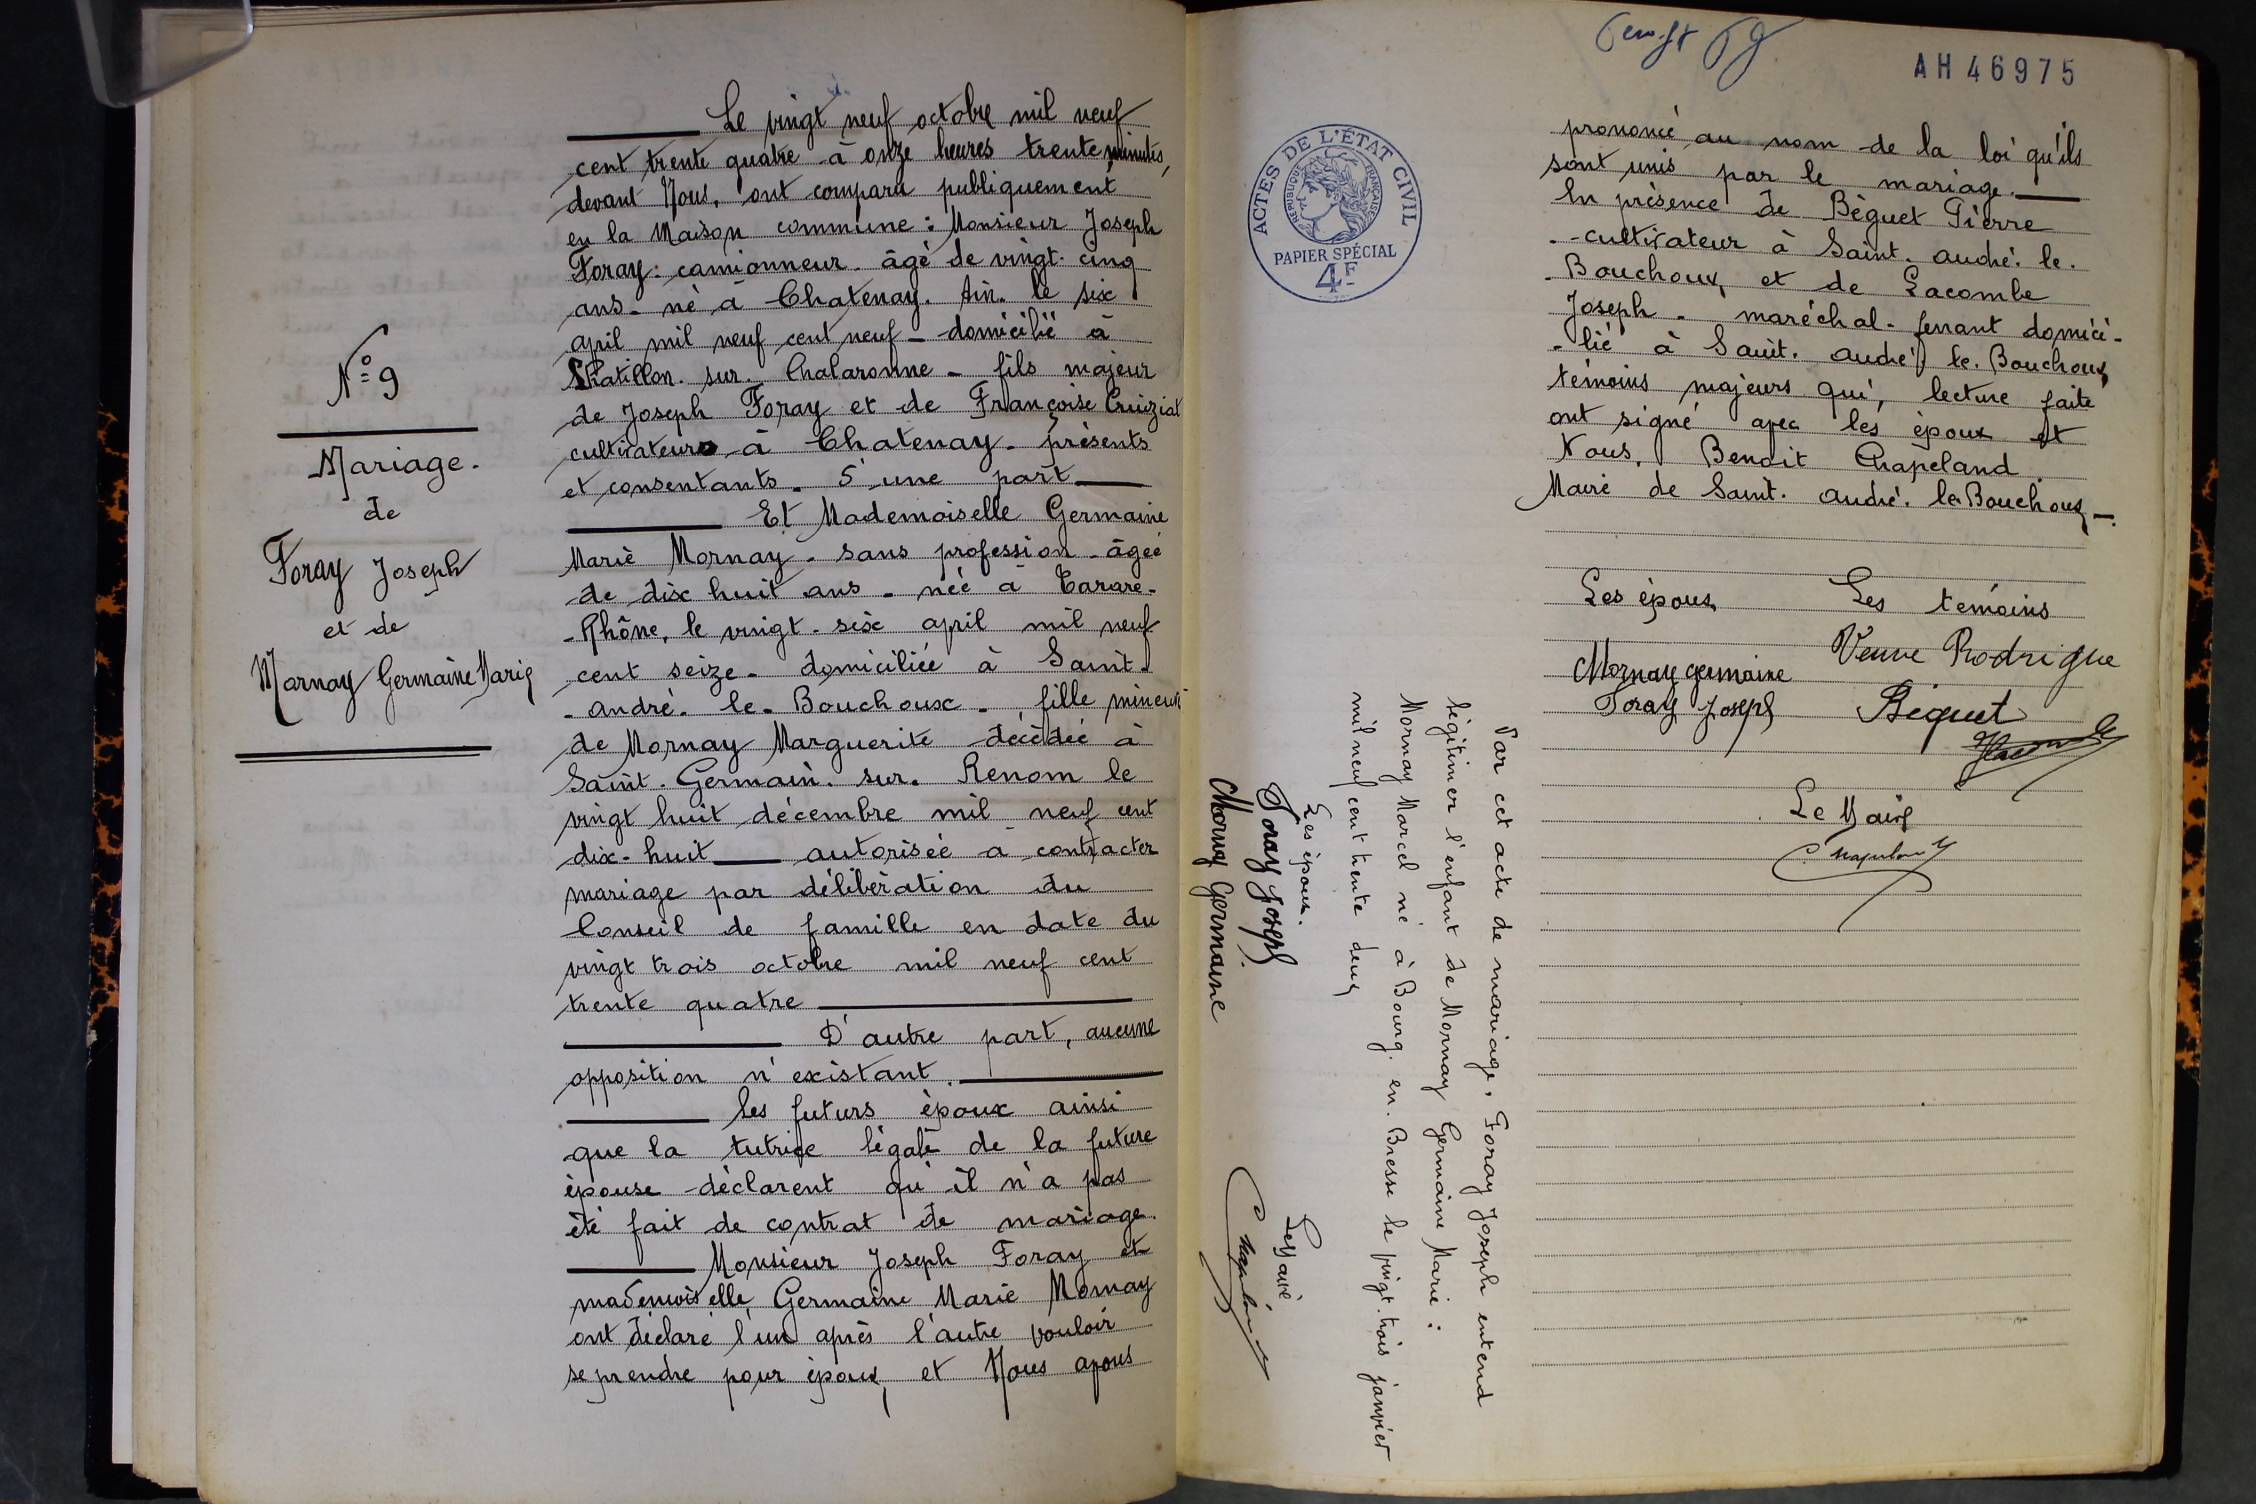 N° 9
Mariage.
de
Foray Joseph
et de
Mornay Germaine Marie
Le vingt neuf octobre mil neuf
cent trente quatre à onze heures trente minutes,
devant Nous, ont comparu publiquement
en la Maison commune : Monsieur Joseph
Foray. camionneur. âgé de vingt. cinq
ans. né à Chatenay. Ain. le six
avril mil neuf cent neuf - domicilié à
Chatillon. sur. Chalaronne - fils majeur
de Joseph Foray et de Françoise Cruiziat
cultivateurs à Chatenay. présents
et consentants. D'une part
Et Mademoiselle Germaine
Marie Mornay. sans profession - âgée
de dix huit ans - née à Tarare-
-Rhône, le vingt-six avril mil neuf
cent seize - domiciliée à Saint-
-andré. le. Bouchoux - fille mineure
de Mornay Marguerite décédée à
Saint. Germain. sur. Renom le
vingt huit décembre mil neuf cent
dix-huit autorisée à contracter
mariage par délibération du
Conseil de famille en date du
vingt trois octobre mil neuf cent
trente quatre
D'autre part, aucune
opposition n'existant.
les futurs époux ainsi
que la tutrice légale de la future
épouse déclarent qu'il n'a pas
été fait de contrat de mariage.
Monsieur Joseph Foray et
mademoiselle Germaine Marie Mornay
ont déclaré l'un après l'autre vouloir
se prendre pour époux, et Nous avons
AH 46975
ACTES DE L'ÉTAT CIVIL
RÉPUBLIQUE FRANÇAISE
PAPIER SPÉCIAL
4F
prononcé au nom de la loi qu'ils
sont unis par le mariage.
En présence de Béguet Pierre
-cultivateur à Saint. andré. le.
Bouchoux, et de Lacombe
Joseph - maréchal-ferrant domici-
-lié à Saint. andré. le. Bouchoux,
témoins majeurs qui, lecture faite
ont signé avec les époux et
Nous, Benoit Chapeland
Maire de Saint. andré. le Bouchoux -.
Les époux Les témoins
Veuve Rodrigue
Mornay germaine
Foray Joseph Béguet
Lacombe
Le Maire
Chapeland
Par cet acte de mariage, Foray Joseph entend
légitimer l'enfant de Mornay Germaine Marie :
Mornay Marcel né à Bourg. en. Bresse le vingt. trois janvier
mil neuf cent trente deux
Les époux. Le Maire
Foray Joseph. Chapeland
Mornay Germaine